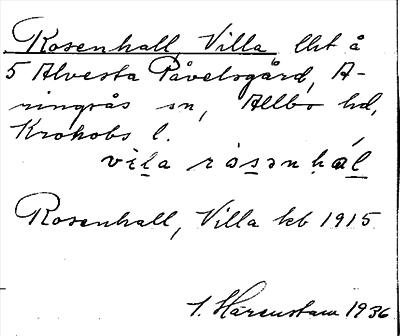 Rosenhall, Villa lht å
5 Alvesta Påvelsgård, A-
ringsås sn, Allbo hd,
Kronobs l.
vila rosənhal
Rosenhall, Villa kb 1915
1936